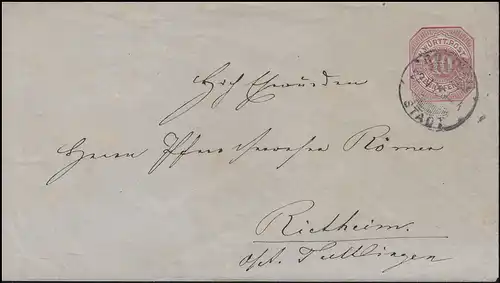 WÜRTT. POST
10
STADT
Hoch Ehrwürden
Herrn Pfarrverweser Römer
Rietheim.
OA. Tuttlingen